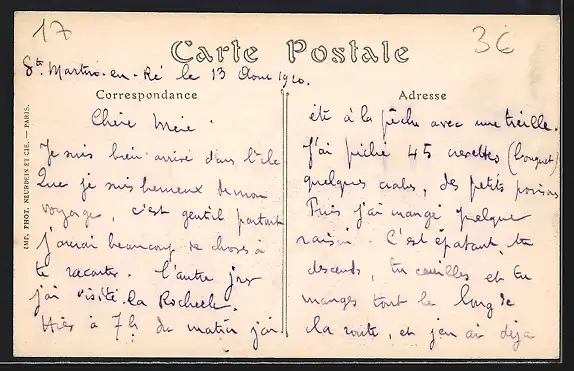 17
3€
Carte Postale
St Martin-en-Ré le 13 Aout 1920.
Correspondance
Chère Mère
Je suis bien arrivé dans l'île
Que je suis heureux de mon
voyage, c'est gentil partout
j'aurai beaucoup de choses à
te raconter. L'autre jour
j'ai visité la Rochelle.
Hier à 7h du matin j'ai
Adresse
été à la pêche avec une treille.
J'ai pêché 45 crevettes (bouquet)
quelques crabes, des petits poissons
Puis j'ai mangé quelque
raisin. C'est épatant, tu
descends, tu cueilles et tu
manges tout le long de
la route, et j'en ai déjà
IMP. PHOT. NEURDEIN ET CIE. — PARIS.